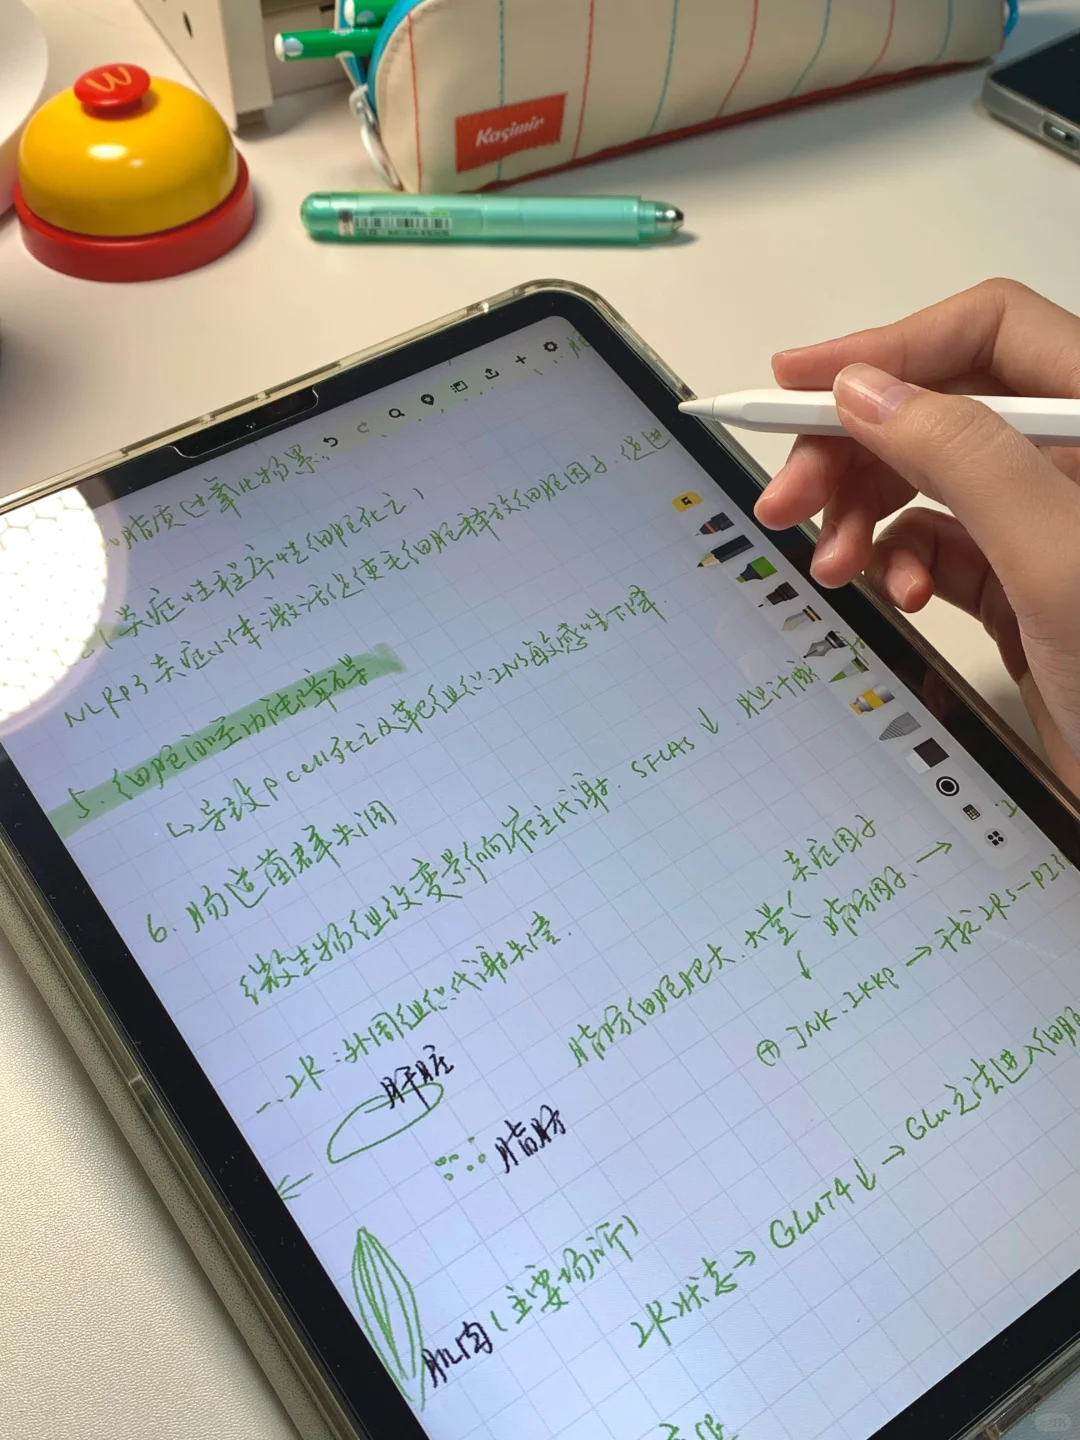 Kasimir
脂质过氧化物累
(炎症性程序性细胞死亡)
NLRP3炎症小体激活促使毛细胞释放细胞因子.促进
5.细胞间室功能障碍
↳导致β cell死亡及靶组织INS敏感性下降.
6.肠道菌群失调
微生物组改变影响宿主代谢. SFCAs↓.胆汁酸
一、IR:外周组织代谢失度.
肝脏
脂肪
肌肉(主要场所)
脂肪细胞肥大.大量(
炎症因子
脂肪因子. →
↓
⊕ JNK.IKKβ → 干扰IRS-PI3
IR状态→ GLUT4↓ → Glu无法进入细胞